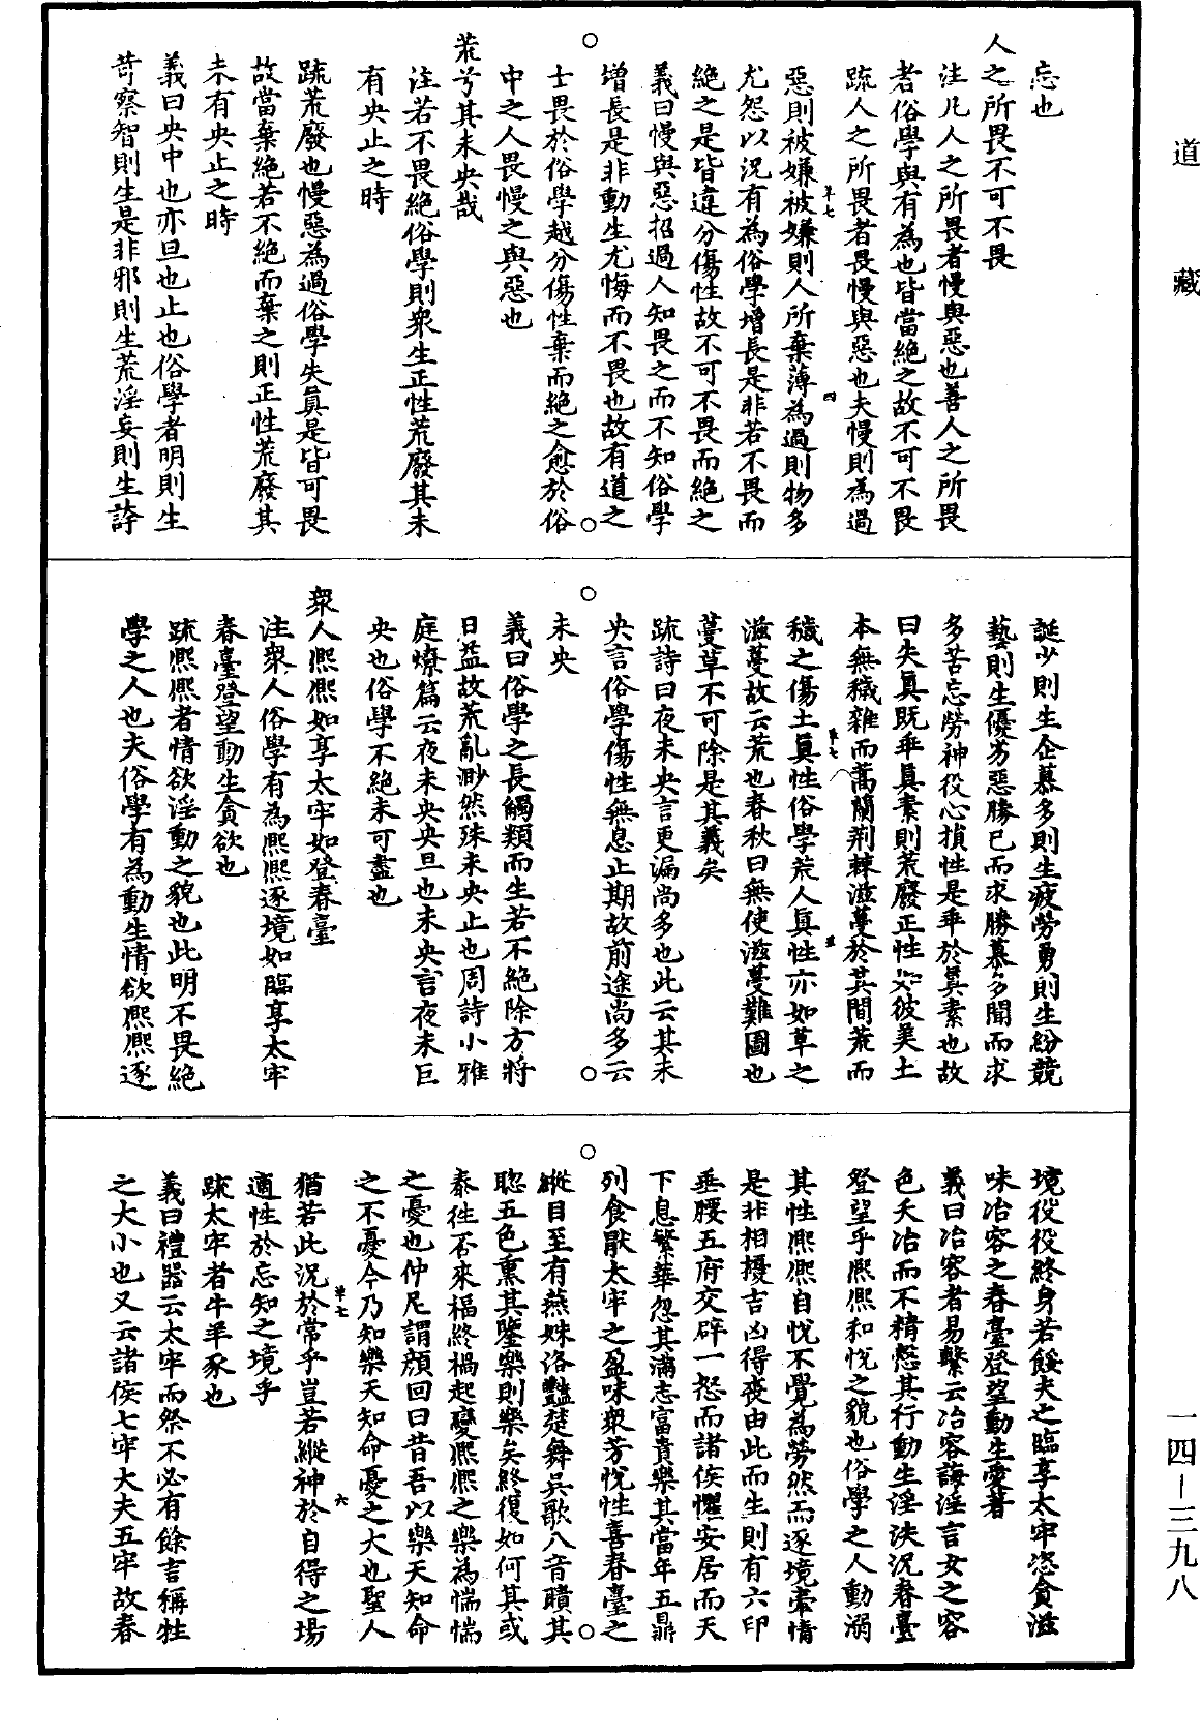 道藏
忘也
人之所畏不可不畏
注凡人之所畏者慢與惡也善人之所畏
者俗學與有為也皆當絕之故不可不畏
疏人之所畏者畏慢與惡也夫慢則為過
惡則被嫌被嫌則人所棄薄為過則物多
尤怨以況有為俗學增長是非若不畏而
絕之是皆違分傷性故不可不畏而絕之
義曰慢與惡招過人知畏之而不知俗學
增長是非動生尤悔而不畏也故有道之
士畏於俗學越分傷性棄而絕之愈於俗
中之人畏慢之與惡也
荒兮其未央哉
注若不畏絕俗學則衆生正性荒廢其未
有央止之時
疏荒廢也慢惡為過俗學失眞是皆可畏
故當棄絕若不絕而棄之則正性荒廢其
未有央止之時
義曰央中也亦旦也止也俗學者明則生
苛察智則生是非邪則生荒淫妄則生誇
誕少則生企慕多則生疲勞勇則生紛競
藝則生優劣惡勝已而求勝慕多聞而求
多苦忘勞神役心損性是乖於眞素也故
曰失眞既乖眞素則荒廢正性如彼美土
本無穢雜而藁蘭荆棘滋蔓於其間荒而
穢之傷土眞性俗學荒人眞性亦如草之
滋蔓故云荒也春秋曰無使滋蔓難圖也
蔓草不可除是其義矣
疏詩曰夜未央言更漏尚多也此云其未
央言俗學傷性無息止期故前途尚多云
未央
義曰俗學之長觸類而生若不絕除方將
日益故荒亂渺然殊未央止也周詩小雅
庭燎篇云夜未央央旦也未央言夜未巨
央也俗學不絕未可盡也
衆人熈熈如享太牢如登春臺
注衆人俗學有為熈熈逐境如臨享太牢
春臺登望動生貪欲也
疏熈熈者情欲淫動之貌也此明不畏絕
學之人也夫俗學有為動生情欲熈熈逐
境役役終身若餒夫之臨享太牢恣貪滋
味冶容之春臺登望動生愛著
義曰冶容者易繫云冶容誨淫言女之容
色夭冶而不精慤其行動生淫泆況春臺
登望乎熈熈和悅之貌也俗學之人動溺
其性熈熈自悅不覺為勞然而逐境牽情
是非相擾吉凶得喪由此而生則有六印
垂腰五府交辟一怒而諸侯懼安居而天
下息繁華忽其滿志富貴樂其當年五鼎
列食厭太牢之盈味衆芳悅性喜春臺之
縱目至有燕姝洛豔楚舞吳歌八音聵其
聦五色熏其鑒樂則樂矣終復如何其或
泰徃否來福終禍起變熈熈之樂為惴惴
之憂也仲尼謂顔回曰昔吾以樂天知命
之不憂今乃知樂天知命憂之大也聖人
猶若此況於常乎豈若縱神於自得之場
適性於忘知之境乎
疏太牢者牛羊豕也
義曰禮器云太牢而祭不必有餘言稱牲
之大小也又云諸侯七牢大夫五牢故春
一四—三九八